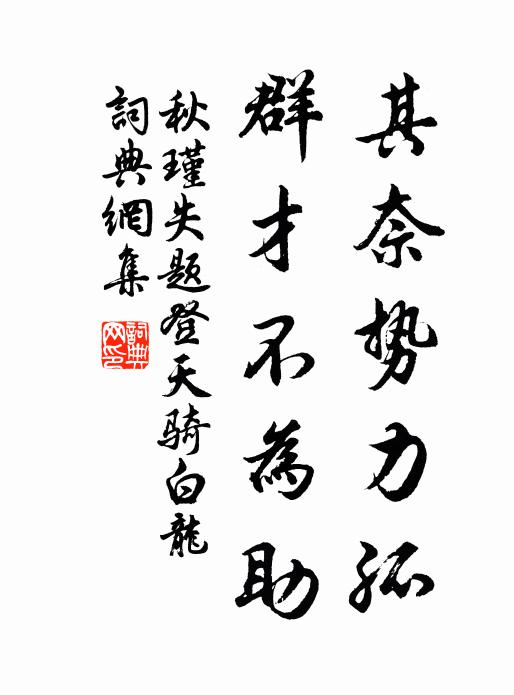 其奈势力孤
群才不為助
秋瑾失题登天骑白龍
詞典網集
詞典
网印